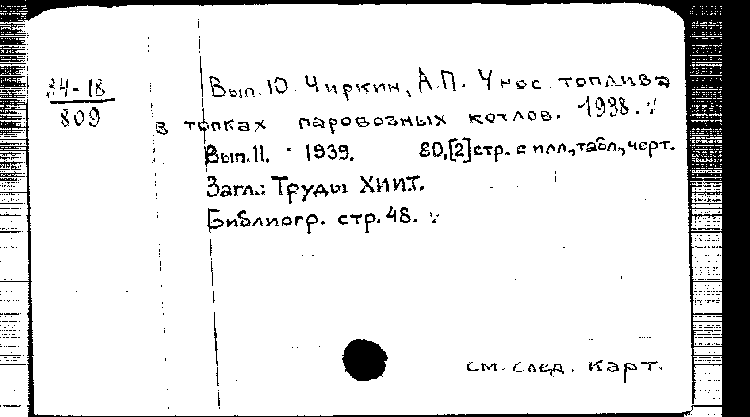 34-18
809
Вып. 10. Чиркин, А.П. Унос топлива
в топках паровозных котлов. 1938.
Вып. 11. 1939. 80,[2] стр. с илл., табл., черт.
Загл.: Труды ХИИТ.
Библиогр. стр. 48.
см. след. карт.